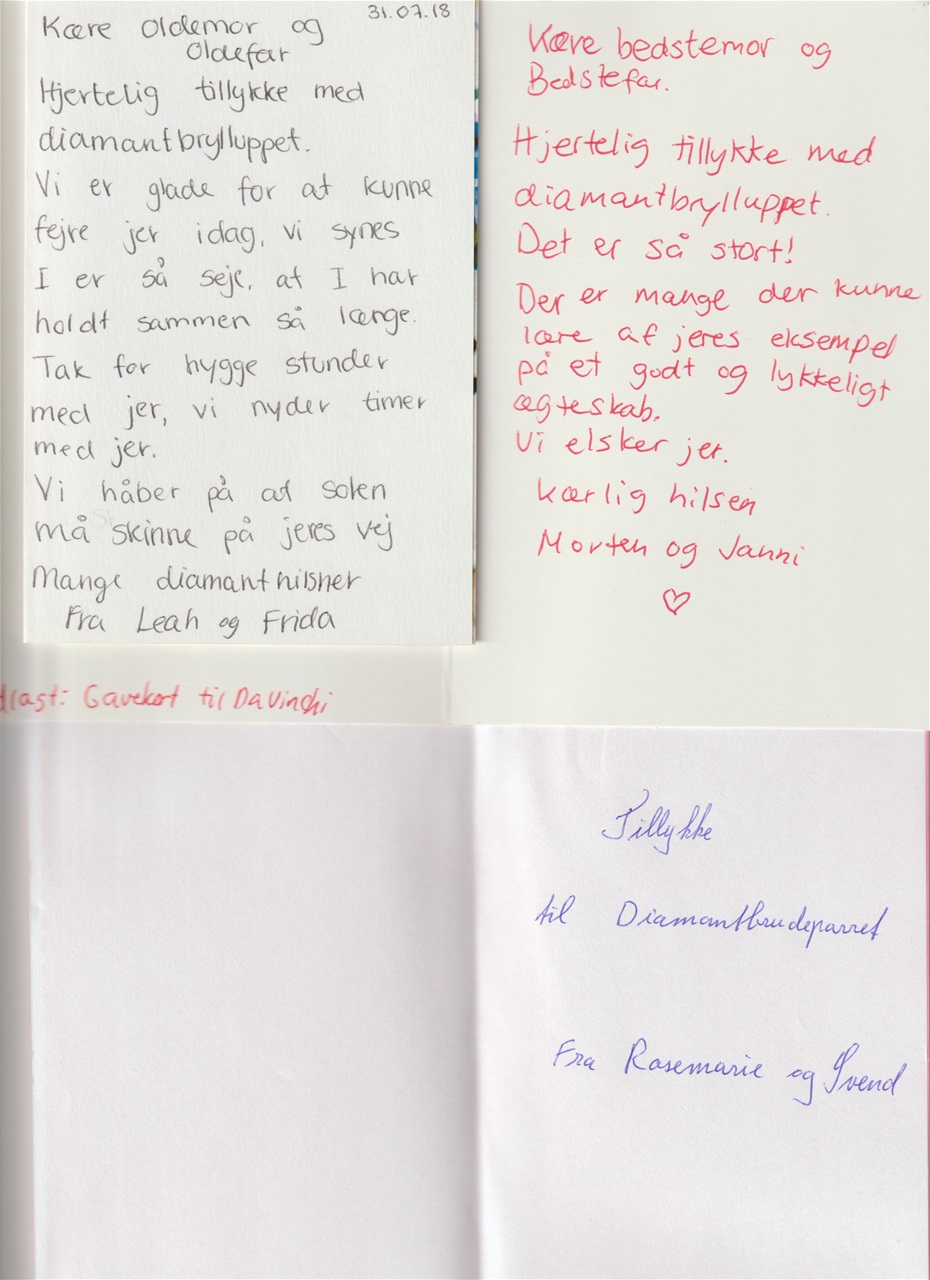 31.07.18
Kære Oldemor og
Oldefar
Hjertelig tillykke med
diamantbrylluppet.
Vi er glade for at kunne
fejre jer idag, vi synes
I er så seje, at I har
holdt sammen så længe.
Tak for hygge stunder
med jer, vi nyder timer
med jer.
Vi håber på at solen
må skinne på jeres vej
Mange diamanthilsner
Fra Leah og Frida
Gavekort til DaVinchi
Kære bedstemor og
Bedstefar.
Hjertelig tillykke med
diamantbrylluppet.
Det er så stort!
Der er mange der kunne
lære af jeres eksempel
på et godt og lykkeligt
ægteskab.
Vi elsker jer.
Kærlig hilsen
Morten og Janni
Tillykke
til Diamantbrudeparret
Fra Rosemarie og Svend